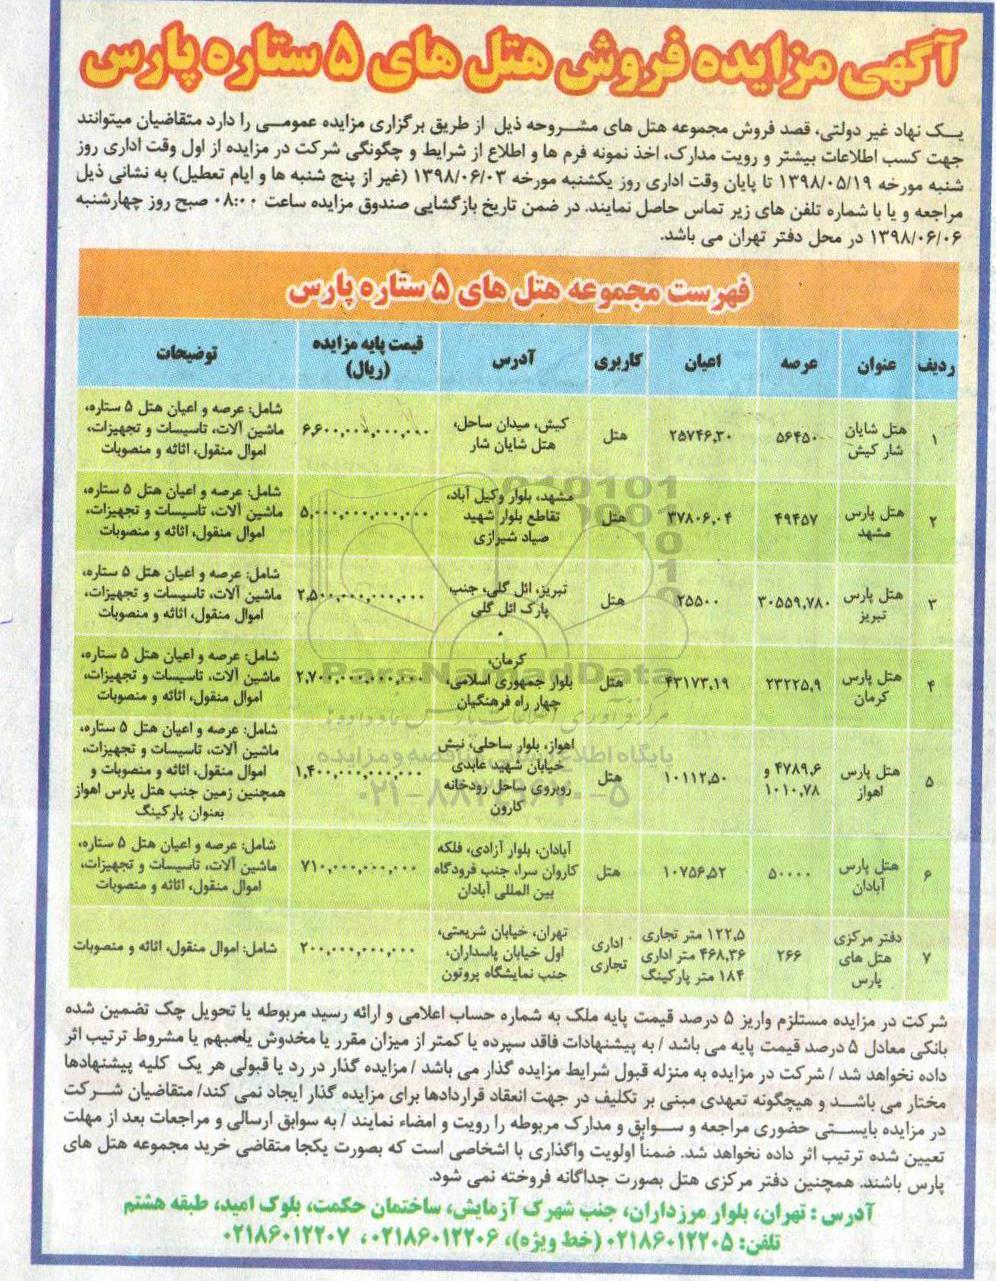 آگهی مزایده فروش هتل های ۵ ستاره پارس
یک نهاد غیر دولتی، قصد فروش مجموعه هتل های مشروحه ذیل از طریق برگزاری مزایده عمومی را دارد متقاضیان میتوانند
جهت کسب اطلاعات بیشتر و رویت مدارک، اخذ نمونه فرم ها و اطلاع از شرایط و چگونگی شرکت در مزایده از اول وقت اداری روز
شنبه مورخه ۱۳۹۸/۰۵/۱۹ تا پایان وقت اداری روز یکشنبه مورخه ۱۳۹۸/۰۶/۰۳ (غیر از پنج شنبه ها و ایام تعطیل) به نشانی ذیل
مراجعه و یا با شماره تلفن های زیر تماس حاصل نمایند. در ضمن تاریخ بازگشایی صندوق مزایده ساعت ۰۸:۰۰ صبح روز چهارشنبه
۱۳۹۸/۰۶/۰۶ در محل دفتر تهران می باشد.
فهرست مجموعه هتل های ۵ ستاره پارس
ردیف عنوان عرصه اعیان کاربری آدرس قیمت پایه مزایده (ریال) توضیحات
۱ هتل شایان شار کیش ۵۶۴۵۰ ۲۵۷۴۶,۳۰ هتل کیش، میدان ساحل، هتل شایان شار ۶,۶۰۰,۰۰۰,۰۰۰,۰۰۰ شامل: عرصه و اعیان هتل ۵ ستاره، ماشین آلات، تاسیسات و تجهیزات، اموال منقول، اثاثه و منصوبات
۲ هتل پارس مشهد ۴۹۴۵۷ ۳۷۸۰۶,۰۴ هتل مشهد، بلوار وکیل آباد، تقاطع بلوار شهید صیاد شیرازی ۵,۰۰۰,۰۰۰,۰۰۰,۰۰۰ شامل: عرصه و اعیان هتل ۵ ستاره، ماشین آلات، تاسیسات و تجهیزات، اموال منقول، اثاثه و منصوبات
۳ هتل پارس تبریز ۳۰۵۵۹,۷۸۰ ۲۵۵۰۰ هتل تبریز، ائل گلی، جنب پارک ائل گلی ۲,۵۰۰,۰۰۰,۰۰۰,۰۰۰ شامل: عرصه و اعیان هتل ۵ ستاره، ماشین آلات، تاسیسات و تجهیزات، اموال منقول، اثاثه و منصوبات
۴ هتل پارس کرمان ۲۳۲۲۵,۹ ۴۳۱۷۳,۱۹ هتل کرمان، بلوار جمهوری اسلامی، چهار راه فرهنگیان ۲,۷۰۰,۰۰۰,۰۰۰,۰۰۰ شامل: عرصه و اعیان هتل ۵ ستاره، ماشین آلات، تاسیسات و تجهیزات، اموال منقول، اثاثه و منصوبات
۵ هتل پارس اهواز ۴۷۸۹,۶ و ۱۰۱۰,۷۸ ۱۰۱۱۲,۵۰ هتل اهواز، بلوار ساحلی، نبش خیابان شهید عابدی روبروی ساحل رودخانه کارون ۱,۴۰۰,۰۰۰,۰۰۰,۰۰۰ شامل: عرصه و اعیان هتل ۵ ستاره، ماشین آلات، تاسیسات و تجهیزات، اموال منقول، اثاثه و منصوبات و همچنین زمین جنب هتل پارس اهواز بعنوان پارکینگ
۶ هتل پارس آبادان ۵۰۰۰۰ ۱۰۷۵۶,۵۲ هتل آبادان، بلوار آزادی، فلکه کاروان سرا، جنب فرودگاه بین المللی آبادان ۷۱۰,۰۰۰,۰۰۰,۰۰۰ شامل: عرصه و اعیان هتل ۵ ستاره، ماشین آلات، تاسیسات و تجهیزات، اموال منقول، اثاثه و منصوبات
۷ دفتر مرکزی هتل های پارس ۲۶۶ ۱۲۲,۵ متر تجاری ۴۶۸,۳۶ متر اداری ۱۸۴ متر پارکینگ اداری تجاری تهران، خیابان شریعتی، اول خیابان پاسداران، جنب نمایشگاه پروتون ۲۰۰,۰۰۰,۰۰۰,۰۰۰ شامل: اموال منقول، اثاثه و منصوبات
ParsNamadData
پایگاه اطلاع رسانی مناقصه و مزایده
شرکت در مزایده مستلزم واریز ۵ درصد قیمت پایه ملک به شماره حساب اعلامی و ارائه رسید مربوطه یا تحویل چک تضمین شده
بانکی معادل ۵ درصد قیمت پایه می باشد / به پیشنهادات فاقد سپرده یا کمتر از میزان مقرر یا مخدوش یا مبهم یا مشروط ترتیب اثر
داده نخواهد شد / شرکت در مزایده به منزله قبول شرایط مزایده گذار می باشد / مزایده گذار در رد یا قبولی هر یک کلیه پیشنهادها
مختار می باشد و هیچگونه تعهدی مبنی بر تکلیف در جهت انعقاد قراردادها برای مزایده گذار ایجاد نمی کند/ متقاضیان شرکت
در مزایده بایستی حضوری مراجعه و سوابق و مدارک مربوطه را رویت و امضاء نمایند / به سوابق ارسالی و مراجعات بعد از مهلت
تعیین شده ترتیب اثر داده نخواهد شد. ضمناً اولویت واگذاری با اشخاصی است که بصورت یکجا متقاضی خرید مجموعه هتل های
پارس باشند. همچنین دفتر مرکزی هتل بصورت جداگانه فروخته نمی شود.
آدرس : تهران، بلوار مرزداران، جنب شهرک آزمایش، ساختمان حکمت، بلوک امید، طبقه هشتم
تلفن: ۰۲۱۸۶۰۱۲۲۰۵ (خط ویژه)، ۰۲۱۸۶۰۱۲۲۰۶ ، ۰۲۱۸۶۰۱۲۲۰۷